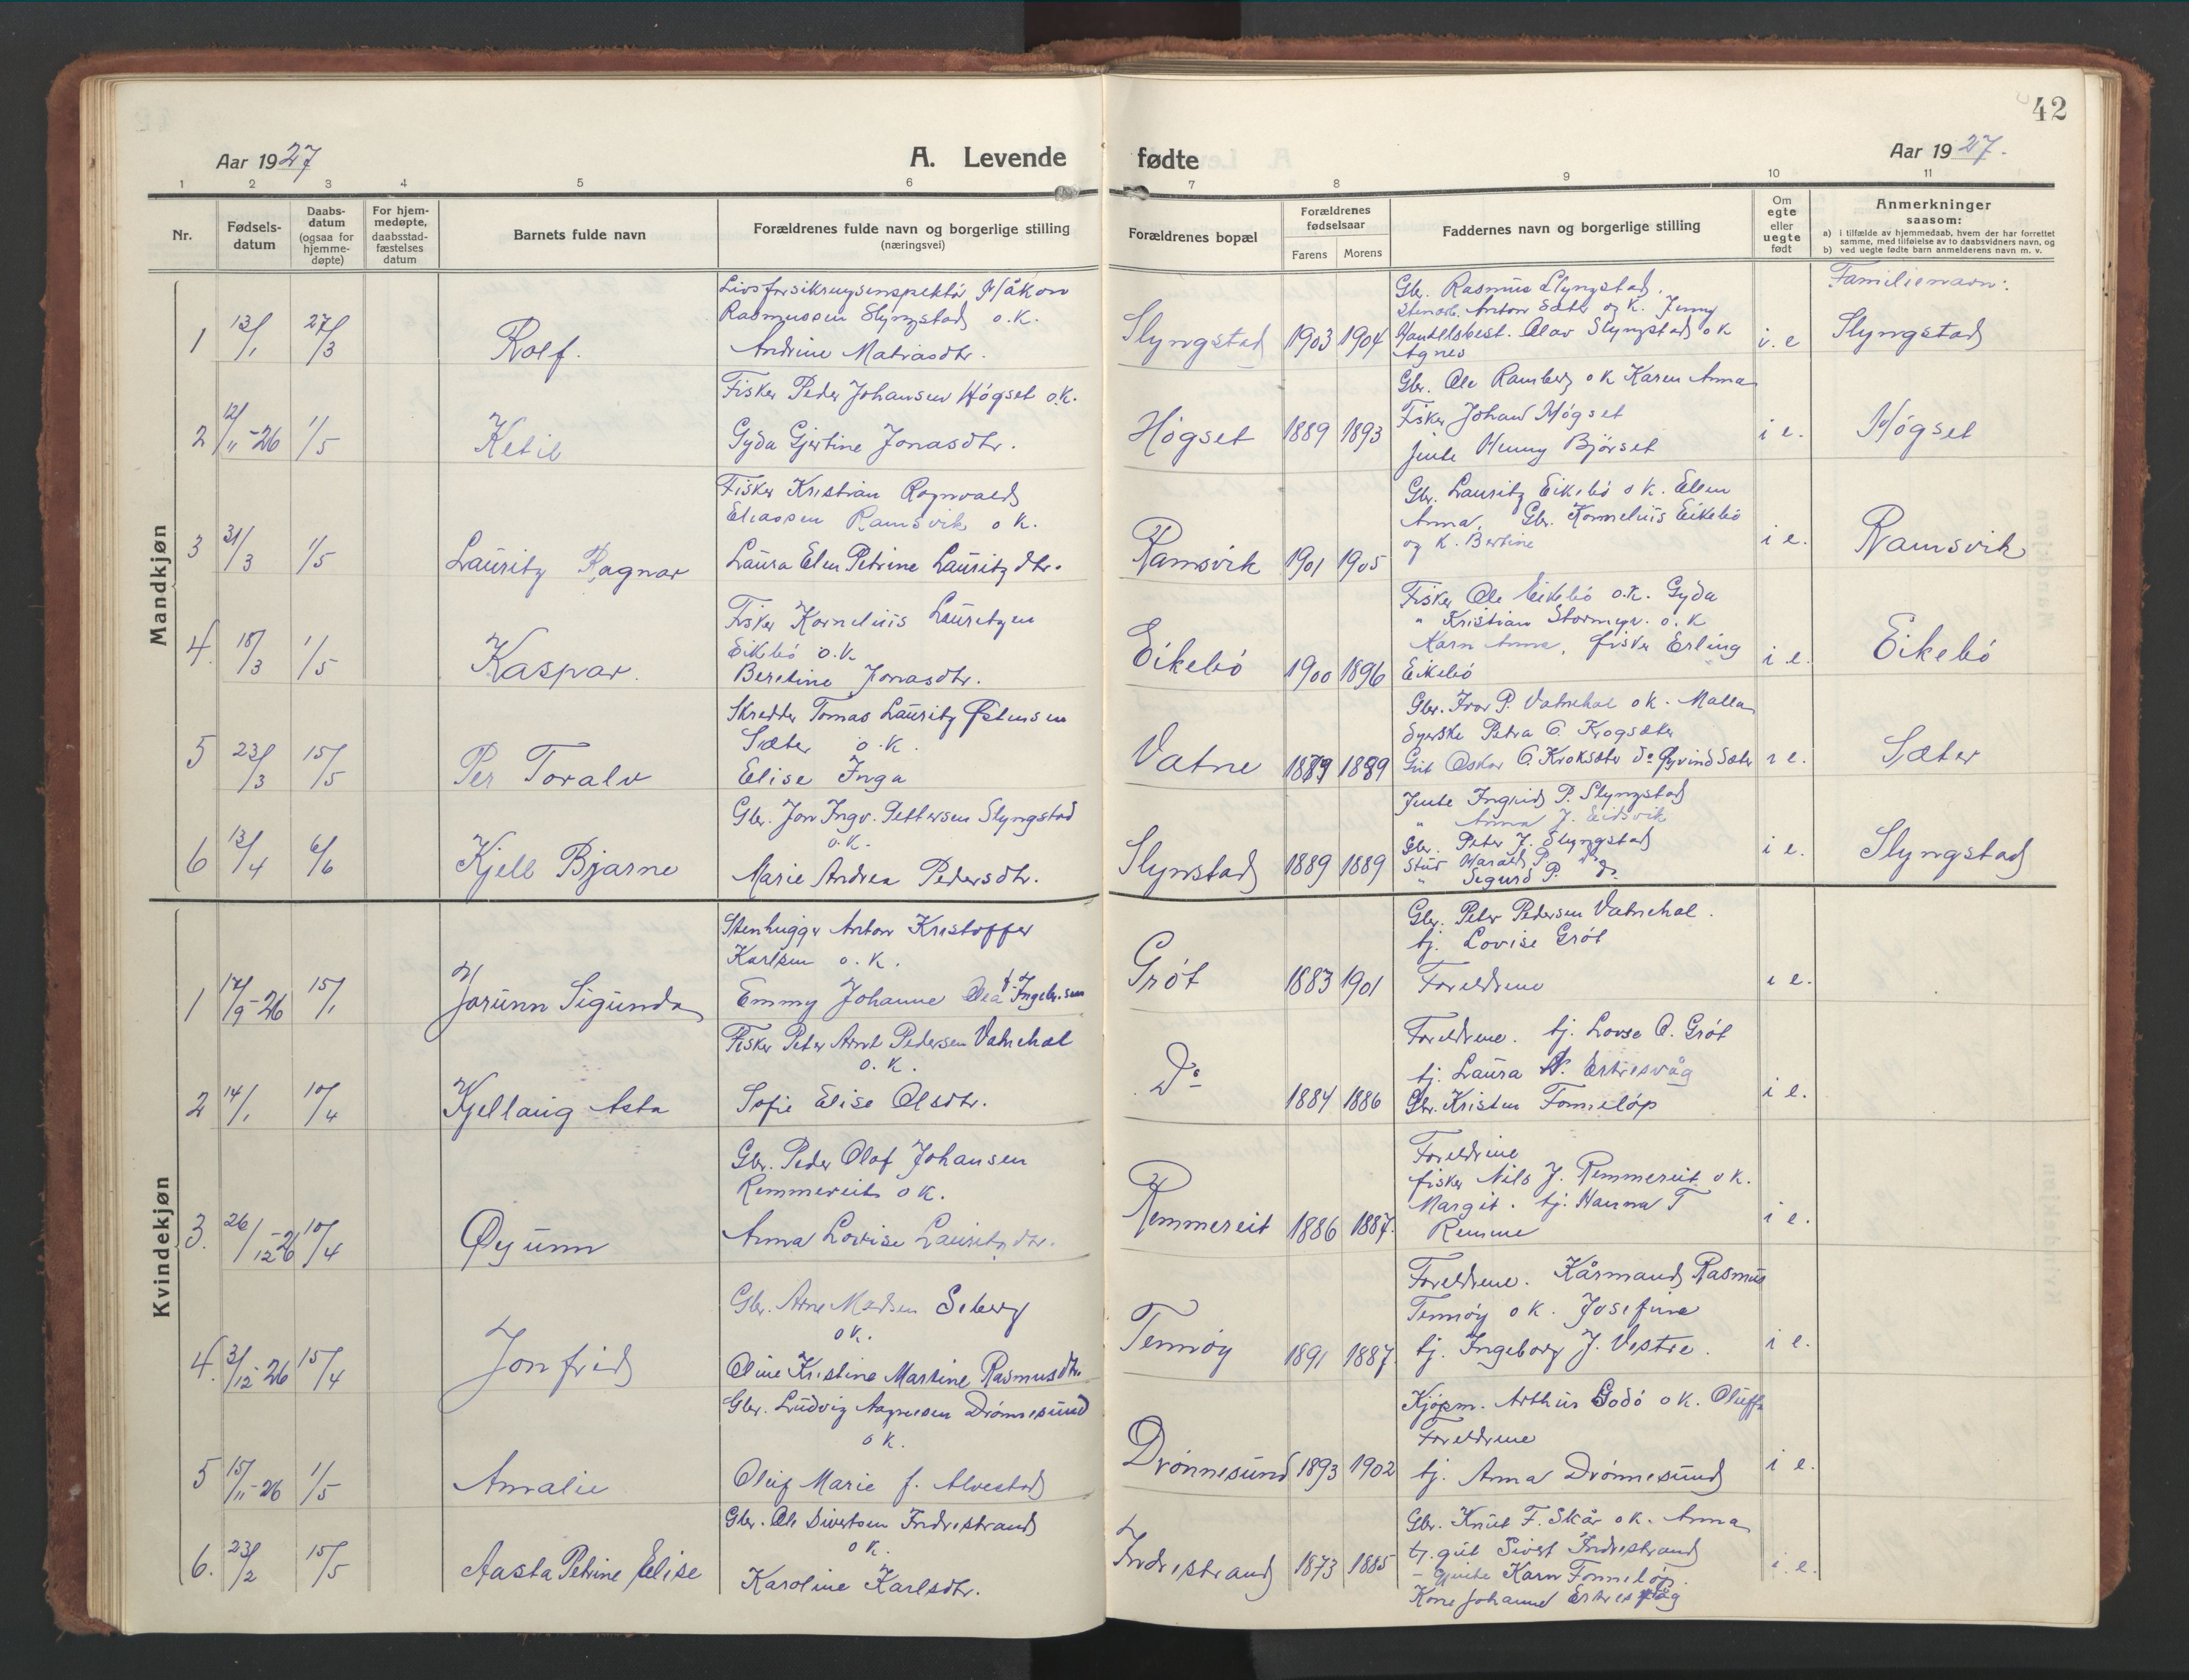 42
Aar 1927
A. Levende
fødte
Aar 1927.
1 2 3 4 5 6 7 8 9 10 11
Nr.
Fødsels-
datum
Daabs-
datum
(ogsaa for
hjemme-
døpte)
For hjem-
medøpte,
daabsstad-
fæstelses
datum
Barnets fulde navn
Forældrenes fulde navn og borgerlige stilling
(næringsvei)
Forældrenes bopæl
Forældrenes
fødselsaar
Farens
Morens
Faddernes navn og borgerlige stilling
Om
egte
eller
uegte
født
Anmerkninger
saasom:
a) i tilfælde av hjemmedaab, hvem der har forrettet
samme, med tilføielse av to daabsvidners navn, og
b) ved uegte fødte barn anmelderens navn m. v.
Familienavn:
Mandkjøn
1 13/1 27/3 Rolf.
Livsforsikringsinspektør Håkon
Rasmussen Slyngstad o.K.
Andrine Matiasdtr.
Slyngstad 1903 1904
Gbr. Rasmus Slyngstad.
Stenarb. Anton Sæter og K. Jenny
Handelsbest. Olav Slyngstad o K
Agnes
i. e Slyngstad
2 12/11-26 1/5 Ketil
Fisker Peder Johansen Høgset o.K.
Gyda Gjertine Jonasdtr.
Høgset 1889 1893
Gbr. Ole Ramberg o K Karen Anna
Fisker Johan Høgset
Jente Henny Bjørset
i e. Høgset
3 31/3 1/5 Lauritz Ragnar
Fisker Kristian Ragnvald
Eliassen Ramsvik o K.
Laura Elen Petrine Lauritzdtr.
Ramsvik 1901 1905
Gbr. Lauritz Eikebø o K. Elen
Anna, Gbr. Kornelius Eikebø
og K. Bertine
i e. Ramsvik
4. 18/3 1/5 Kaspar.
Fisker Kornelius Lauritzen
Eikebø o.K
Beretine Jonasdtr.
Eikebø 1900 1896
Fisker Ole Eikebø o.K. Gyda
" Kristian Stormyr. o. K
Karn Anna, fisker Erling
Eikebø
i e. Eikebø
5 23/3 15/5 Per Toralv
Skredder Tomas Lauritz Østensen
Sæter o. K.
Elise Inga
Vatne 1879 1889
Gbr. Ivar P. Vatnehal o K. Malla
Syerske Petra O. Krogsæter
Gut Oskar O. Kroksæter do Øyvind Sæter
i e. Sæter
6 13/4 6/6 Kjell Bjarne
Gbr. Jon Ingv. Pettersen Slyngstad
o. K.
Marie Andrea Pedersdtr.
Slynstad 1889 1889
Jente Ingrid P. Slyngstad
" Anna J. Eidsvik
Gbr. Peter J. Slyngstad
Stud Harald P. do
" Sigurd P. do
i e. Slyngstad
Kvindekjøn
1 17/9-26 15/1 Jorunn Sigunda
Stenhugger Anton Kristoffer
Karlsen o. K.
Emmy Johanne Olea f. Ingebr.sen
Grøt 1883 1901
Gbr. Peter Pedersen Vatnehal.
tj. Lovise Grøt
Foreldrene
i e.
2 14/1 10/4 Kjellaug Asta
Fisker Peter Arnt Pedersen Vatnehal
o. K.
Sofie Elise Olsdtr.
Do 1884 1886
Foreldrene. tj. Lovse O. Grøt
tj. Laura A. Estresvåg
Gbr. Kristen Tomeløp
i e.
3. 26/12-26 10/4 Øyunn
Gbr. Peder Olaf Johansen
Remmereit o K.
Anna Lovise Lauritzdtr.
Remmereit 1886 1887.
Foreldrene
fisker Nils J. Remmereit o K.
Margit. tj. Hanna T
Remme
i e.
4. 31/12-26 15/4 Jonfrid
Gbr. Arne Madsen Seberg
o K.
Oline Kristine Martine Rasmusdtr.
Tennøy 1891 1887.
Foreldrene. Kårmand Rasmus
Tennøy o K. Josefine
tj. Ingeborg J. Vestre.
i e.
5 15/11-26 1/5 Amalie
Gbr. Ludvig Aagesen Drønnesund
o K.
Oluf Marie f. Alvestad
Drønnesund 1893 1902
Kjøpm. Arthur Godø o K. Oluffa
Foreldrene
tj. Anna Drønnesund
i e.
6. 23/2 15/5 Aasta Petrine Elise
Gbr. Ole Sivertsen Indrestrand
o K.
Karoline Karlsdtr.
Indrestrand 1873 1885
Gbr. Knut F. Skår o K. Anna
tj. gut Sivert Indrestrand
- Gjente Karn Tomeløp.
Kone Johanne Estresvåg
i. e.